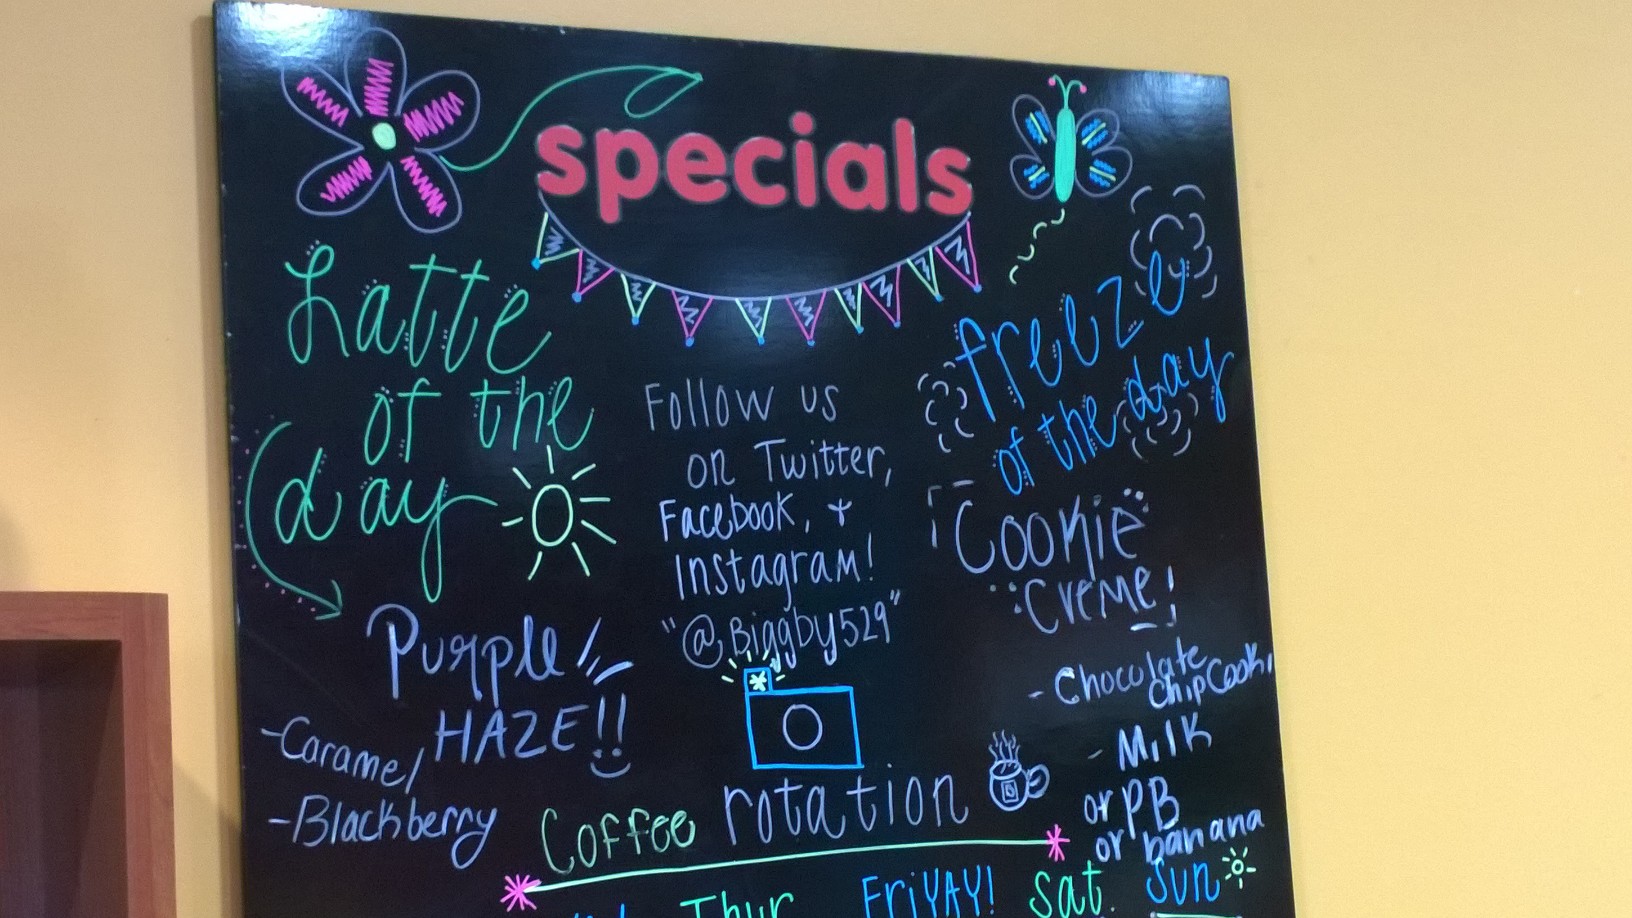 specials
Latte
of the
day
Purple
HAZE!!
-Caramel
-Blackberry
Follow us
on Twitter,
Facebook, +
Instagram!
"@Biggby529"
freeze
of the day
Cookie
Creme!
- Chocolate
Chip
- Milk
or PB
or banana
Coffee rotation
Thur FriYAY! Sat. Sun